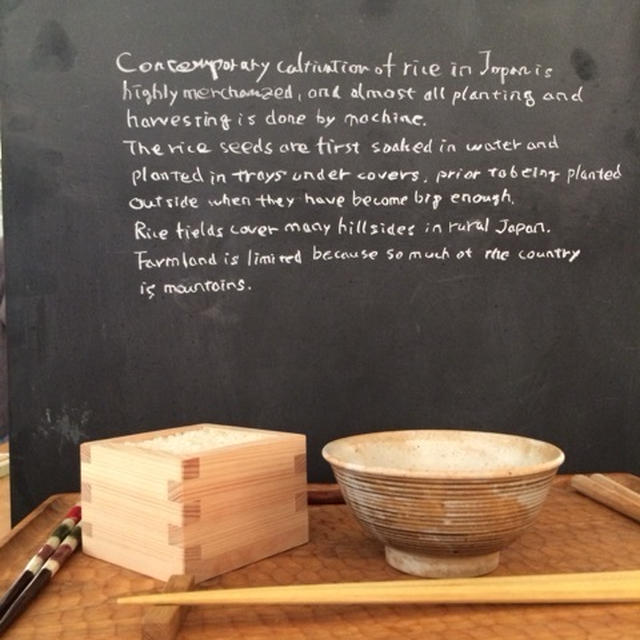 Contemporary cultivation of rice in Japan is
highly merchanized, and almost all planting and
harvesting is done by machine.
The rice seeds are first soaked in water and
planted in trays under covers, prior to being planted
outside when they have become big enough.
Rice fields cover many hillsides in rural Japan.
Farmland is limited because so much of the country
is mountains.